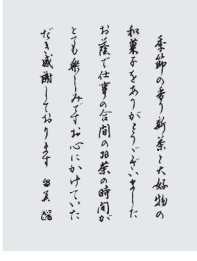 季節の香り新茶と大好物の
和菓子をありがとうございました
お蔭で仕事の合間のお茶の時間が
とても楽しみですお心にかけていた
だき感謝しております